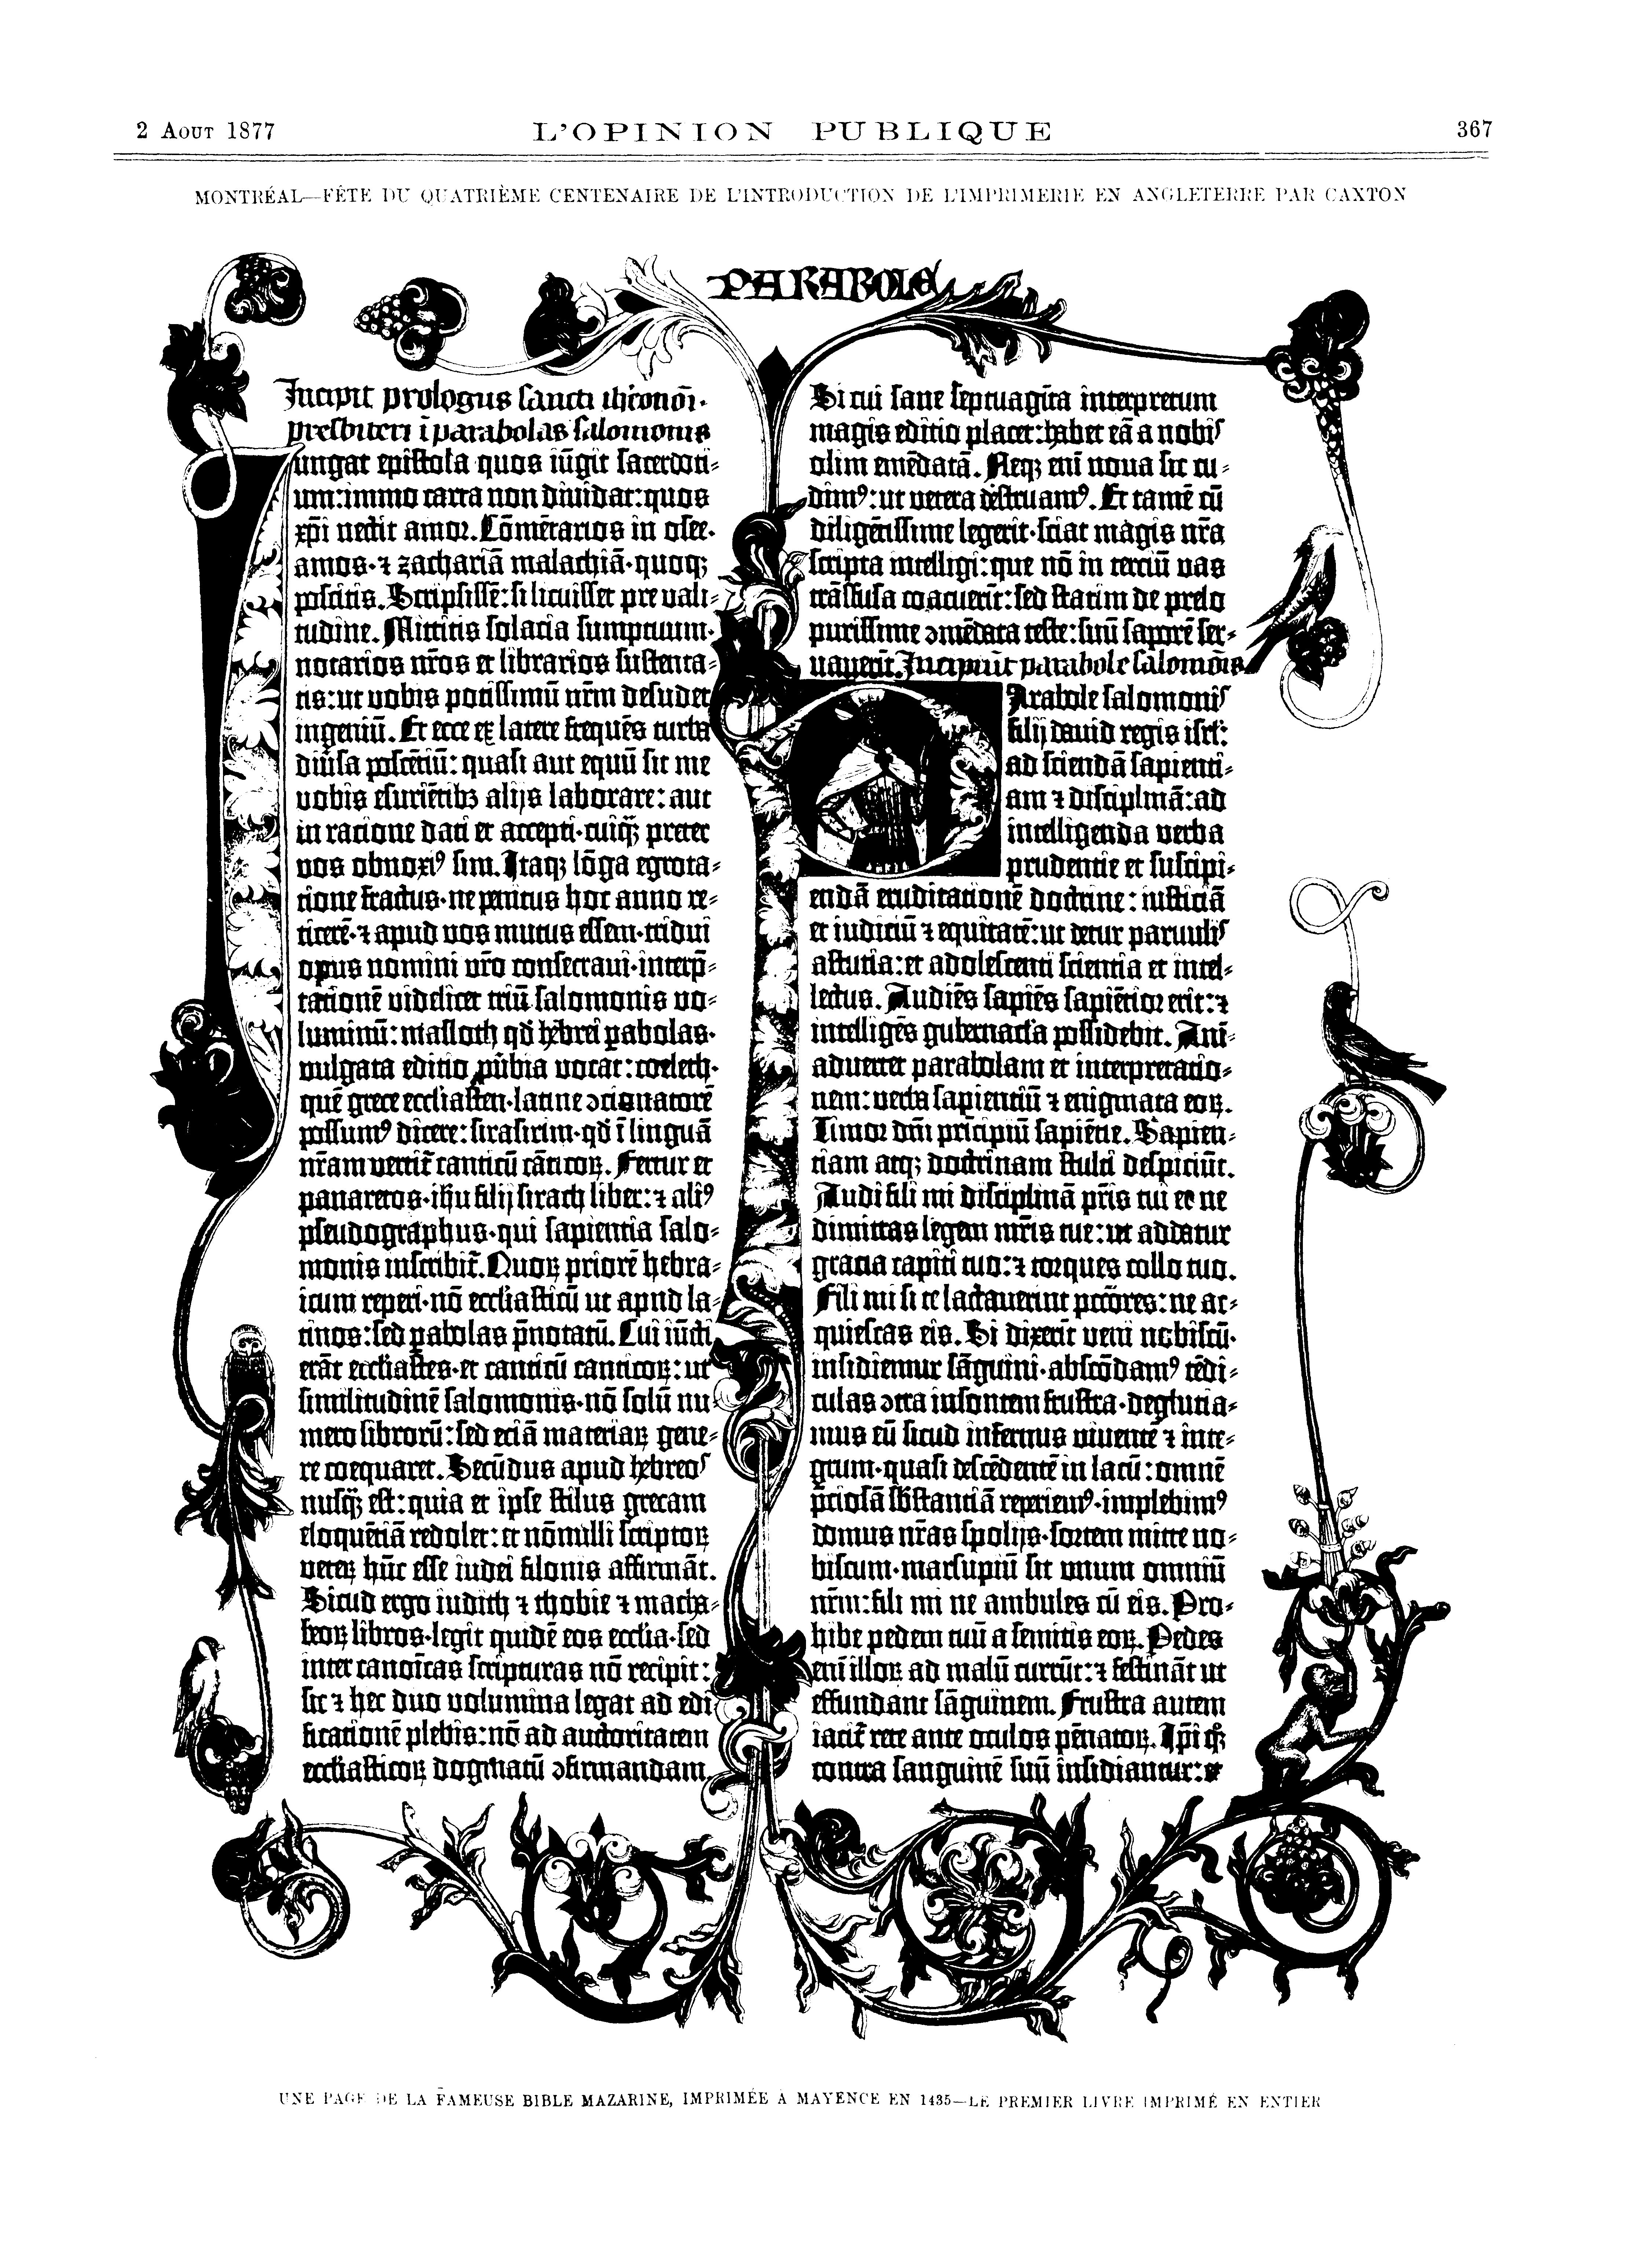 2 AOUT 1877
L'OPINION PUBLIQUE
367
MONTRÉAL—FÊTE DU QUATRIÈME CENTENAIRE DE L'INTRODUCTION DE L'IMPRIMERIE EN ANGLETERRE PAR CAXTON
PARABOLE
Incipit prologus sancti iheronimi
presbiteri ī parabolas salomonis
ungat epistola quos iūgit sacerdoti-
um: immo carta non diuidat: quos
xp̄i nectit amor. Cōmētarios in osee·
amos·⁊ zachariā malachiā·quoqꝫ
poscitis. Scripsissē: si licuisset pre vali-
tudine. Mittitis solacia sumptuum·
notarios nr̄os et librarios sustenta-
tis: ut vobis potissimū nr̄m desudet
ingeniū. Et ecce ex latere frequēs turba
diūsa poscētiū: quasi aut equū sit me
vobis esuriētibꝫ alijs laborare: aut
in ratione dati et accepti·cuiq̄ꝫ preter
vos obnoxiꝰ sim. Itaqꝫ lōga egrota-
tione fractus·ne penitus hoc anno re-
ticerē·⁊ apud vos mutus essem·tridui
opus nomini vr̄o consecraui·interp̄-
tationē videlicet triū salomonis vo-
luminū: masloth qd̄ hebrei ꝑabolas·
vulgata editio ꝓūbia vocat: coeleth·
quē grece eccl̄iasten·latine ↄcionatorē
possumꝰ dicere: sirasirim·qd̄ ī linguā
nr̄am vertit̄ canticū cāticoꝝ. Fertur et
panaretos·ih̄u filij sirach liber: ⁊ aliꝰ
pseudographus·qui sapientia salo-
monis inscribit̄. Quoꝝ priorē hebra-
icum reperi·nō eccl̄iasticū ut apud la-
tinos: sed ꝑabolas p̄notatū. Cui iūcti
erāt eccl̄iastes·et canticū canticoꝝ: ut
similitudinē salomonis·nō solū nu-
mero librorū: sed eciā materiaꝝ gene-
re coequaret. Secūdus apud hebreos
nusq̄ꝫ est: quia et ipse stilus grecam
eloquētiā redolet: et nōnulli scriptoꝝ
veteꝝ hūc esse iudei filonis affirmāt.
Sicud ergo iudith ⁊ thobie ⁊ macha-
beoꝝ libros·legit quidē eos eccl̄ia·sed
inter canoīcas scripturas nō recipit:
sic ⁊ hec duo volumina legat ad edi
ficationē plebis: nō ad auctoritatem
eccl̄iasticoꝝ dogmatū ↄfirmandam.
Si cui sane septuagīta interpretum
magis editio placet: habet eā a nobis
olim emēdatā. Neqꝫ enī noua sic cu-
dimꝰ: ut vetera destruamꝰ. Et tamē cū
diligētissime legerit·sciat magis nr̄a
scripta intelligi: que nō in terciū vas
trāsfusa coacuerīt: sed statim de prelo
purissime ↄmēdata teste: suū saporē ser-
uauerīt. Incipiūt parabole salomōis
Arabole salomonis
filij dauid regis isrl̄:
ad sciendā sapienti-
am ⁊ disciplinā: ad
intelligenda verba
prudentie et suscipi-
endā eruditationē doctrine: iusticiā
et iudiciū ⁊ equitatē: ut detur paruulis
astutia: et adolescenti scientia et intel-
lectus. Audiēs sapiēs sapiētior erit: ⁊
intelligēs gubernacl̄a possidebit. Anī-
aduertet parabolam et interpretatio-
nem: verba sapientiū ⁊ enigmata eoꝝ.
Timor dn̄i prīcipiū sapiētie. Sapien-
tiam atqꝫ doctrinam stulti despiciūt.
Audi fili mi disciplinā pr̄is tui et ne
dimittas legem mr̄is tue: ut addatur
gracia capiti tuo: ⁊ torques collo tuo.
Fili mi si te lactauerint pctōres: ne ac-
quiescas eis. Si dixerīt veni nobiscū·
insidiemur sāguini·abscōdamꝰ tēdi-
culas ↄtra insontem frustra·deglutia-
mus eū sicud infernus viuentē ⁊ inte-
grum·quasi descēdentē in lacū: omnē
p̄ciosā sb̄stantiā reperiemꝰ·implebimꝰ
domus nr̄as spolijs·sortem mitte no-
biscum·marsupiū sit unum omniū
nr̄m: fili mi ne ambules cū eis. Pro-
hibe pedem tuū a semitis eoꝝ. Pedes
enī illoꝝ ad malū currūt: ⁊ festināt ut
effundant sāguinem. Frustra autem
iacit̄ rete ante oculos pēnatoꝝ. Ip̄i qꝫ
contra sanguinē suū insidiantur: et
UNE PAGE DE LA FAMEUSE BIBLE MAZARINE, IMPRIMÉE À MAYENCE EN 1435—LE PREMIER LIVRE IMPRIMÉ EN ENTIER